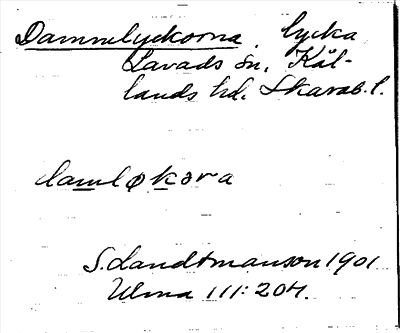 Dammlyckorna, lycka
Lavads sn, Kål-
lands hd. Skarab. l.
damløkɔra
S. Landtmanson 1901
Ulma 111:204.